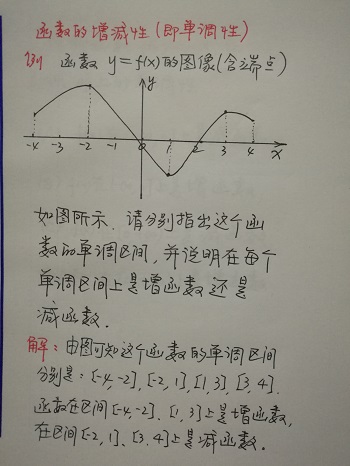 函数的增减性(即单调性)
例 函数 y=f(x)的图像(含端点)
y
-4 -3 -2 -1 0 1 2 3 4 x
如图所示.请分别指出这个函
数的单调区间,并说明在每个
单调区间上是增函数还是
减函数.
解:由图可知这个函数的单调区间
分别是:[-4,-2],[-2,1],[1,3],[3,4].
函数在区间[-4,-2]、[1,3]上是增函数,
在区间[-2,1]、[3,4]上是减函数.